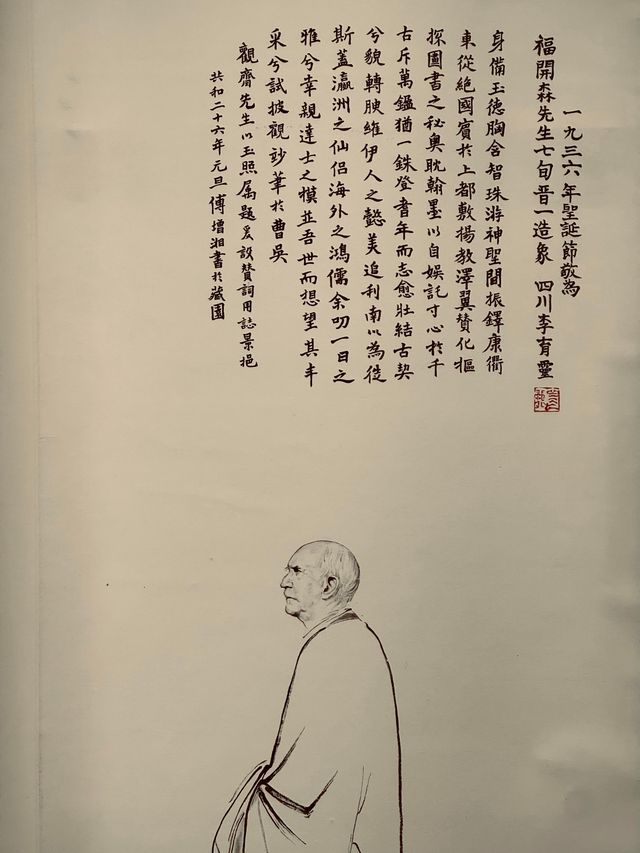 一九三六年聖誕節敬為
福開森先生七旬晉一造象　四川李育靈
身備玉德胸含智珠游神聖閫振鐸康衢
車從絕國賓於上都敷揚教澤翼贊化樞
探圖書之秘奧耽翰墨以自娛託寸心於千
古斥萬鎰猶一銖登耆年而志愈壯結古契
兮貌轉腴維伊人之懿美追利南以為徒
斯蓋瀛洲之仙侶海外之鴻儒余叨一日之
雅兮幸親達士之模並吾世而想望其丰
采兮試披觀妙筆於曹吳
觀齋先生以玉照屬題爰譔贊詞用誌景挹
共和二十六年元旦傅增湘書於藏園